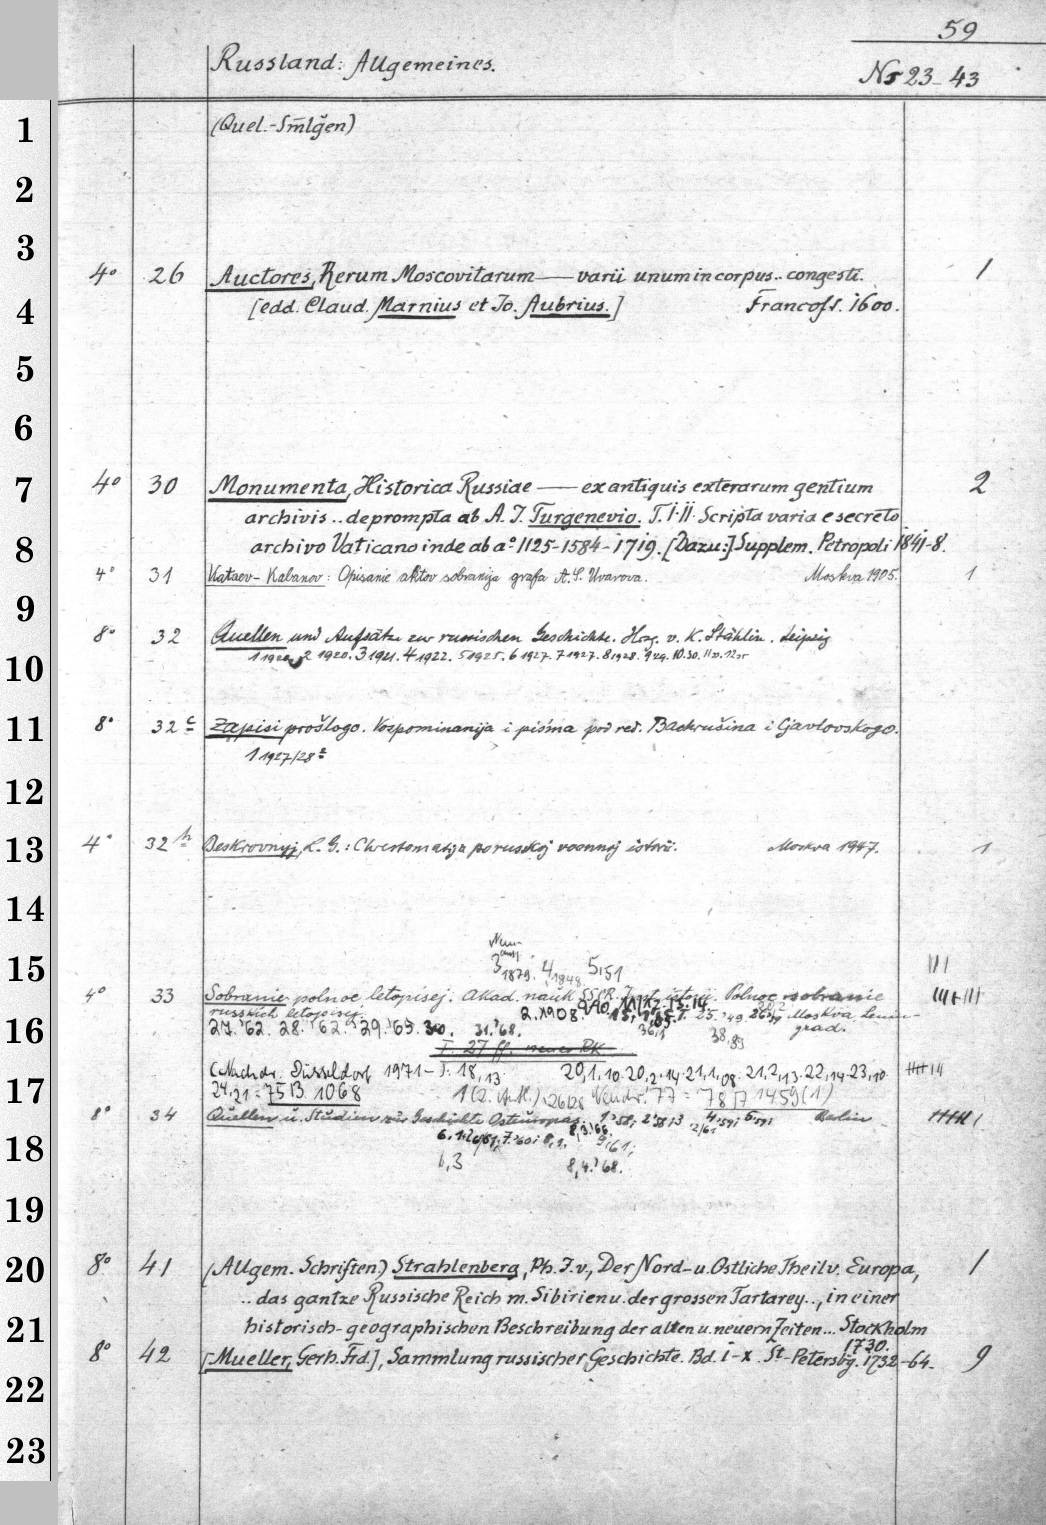 59
Russland: Allgemeines.
Nr 23-43
1
(Quel.-Smlgen)
2
3
4° 26 Auctores, Rerum Moscovitarum — varii unum in corpus.. congesti. 1
4
[edd. Claud. Marnius et Jo. Aubrius.] Francoff. 1600.
5
6
7
4° 30 Monumenta, Historica Russiae — ex antiquis exterarum gentium 2
archivis .. deprompta ab A. J. Turgenevio. T. I-II. Scripta varia e secreto
8
archivo Vaticano inde ab a° 1125-1584-1719. [Dazu:] Supplem. Petropoli 1841-8.
4° 31 Kataev-Kabanov: Opisanie aktov sobranija grafa A. S. Uvarova. Moskva 1905. 1
9
8° 32 Quellen und Aufsätze zur russischen Geschichte. Hrsg. v. K. Stählin. Leipzig
10
1 1920. 2 1920. 3 1921. 4 1922. 5 1925. 6 1927. 7 1927. 8 1928. 9 29. 10. 30.
11
8° 32 c Zapisi prošlogo. Vospominanija i pis'ma pod red. Bachrušina i Cjavlovskogo.
1 1927/28
12
13
4° 32 h Beskrovnyj, L. G.: Chrestomatija po russkoj voennoj istorii. Moskva 1947. 1
14
15
3 1879. 4 1848. 5,51
4° 33 Sobranie polnoe letopisej. Akad. nauk SSSR. Inst. istorii. Polnoe sobranie
russkich letopisej. 2. 1908. Moskva, Lenin-
16
27. '62. 28. '62. 29. '65. 30. 31. '68. 38,89 grad.
T. 27 ff. RK
(Nachdr. Düsseldorf 1971- T. 18,13 20,1.10. 20,2.14. 21,1,08. 21,2,13. 22,14. 23,10.
17
24,21 = 75 B 1068 Neudr. 77 = 78 1459(1)
8° 34 Quellen u. Studien zur Geschichte Osteuropas. 1 '58; 2 '58; 3 Berlin
18
6,3 8,4.'68. 9,'61;
19
20
8° 41 (Allgem. Schriften.) Strahlenberg, Ph. J. v., Der Nord- u. Ostliche Theil v. Europa, 1
.. das gantze Russische Reich m. Sibirien u. der grossen Tartarey .., in einer
21
historisch-geographischen Beschreibung der alten u. neuern Zeiten... Stockholm
1730.
8° 42 [Mueller, Gerh. Frd.], Sammlung russischer Geschichte. Bd. I-X. St-Petersbg. 1732-64. 9
22
23